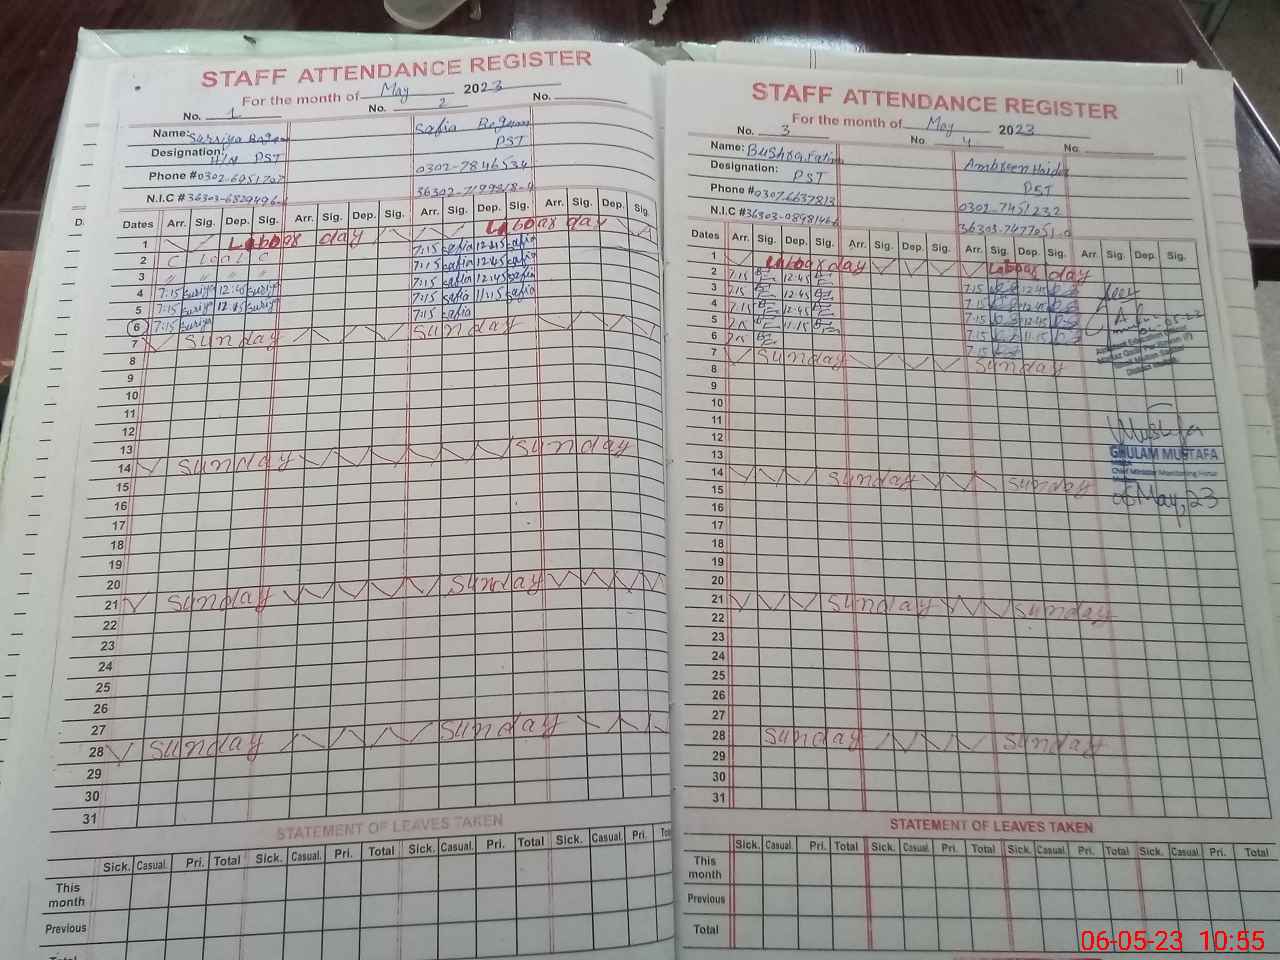 STAFF ATTENDANCE REGISTER
For the month of May 2023
No. 1 No. 2 No.
Name: Safia Begum
Designation: H/M PST PST
Phone # 0302-7846534
N.I.C #
Dates Arr. Sig. Dep. Sig. Arr. Sig. Dep. Sig. Arr. Sig. Dep. Sig. Arr. Sig. Dep. Sig.
1 Labbar day Labbar day
2 C Leal C 7:15 safia 12:45 safia
3 " " " " 7:15 safia 12:45 safia
4 7:15 suriya 12:45 suriya 7:15 safia 12:45 safia
5 7:15 suriya 12:45 suriya 7:15 safia 11:15 safia
6 7:15 suriya 7:15 safia
7 Sunday Sunday
8
9
10
11
12
13
14 Sunday Sunday
15
16
17
18
19
20
21 Sunday Sunday
22
23
24
25
26
27
28 Sunday Sunday
29
30
31
STATEMENT OF LEAVES TAKEN
Sick. Casual. Pri. Total Sick. Casual. Pri. Total Sick. Casual. Pri. Total Sick. Casual. Pri.
This month
Previous
Total
STAFF ATTENDANCE REGISTER
For the month of May 2023
No. 3 No. 4 No.
Name: Bushra Fatima Ambreen Haider
Designation: PST PST
Phone # 0307-6637813 0302-7451232
N.I.C #
Dates Arr. Sig. Dep. Sig. Arr. Sig. Dep. Sig. Arr. Sig. Dep. Sig. Arr. Sig. Dep. Sig.
1 Labbar day Labbar day
2 7:15 12:45
3 7:15 12:45 7:15 12:45
4 7:15 12:45 7:15 12:45
5 11:15 7:15 12:45
6 7:15 11:15
7 Sunday 7:15
8 Sunday
9
10
11
12
13
14 Sunday Sunday
15
16
17
18
19
20
21 Sunday Sunday
22
23
24
25
26
27
28 Sunday Sunday
29
30
31
Mustafa
GHULAM MUSTAFA
Chief Minister Monitoring Force
06 May, 23
STATEMENT OF LEAVES TAKEN
Sick. Casual. Pri. Total Sick. Casual. Pri. Total Sick. Casual. Pri. Total Sick. Casual. Pri. Total
This month
Previous
Total
06-05-23 10:55